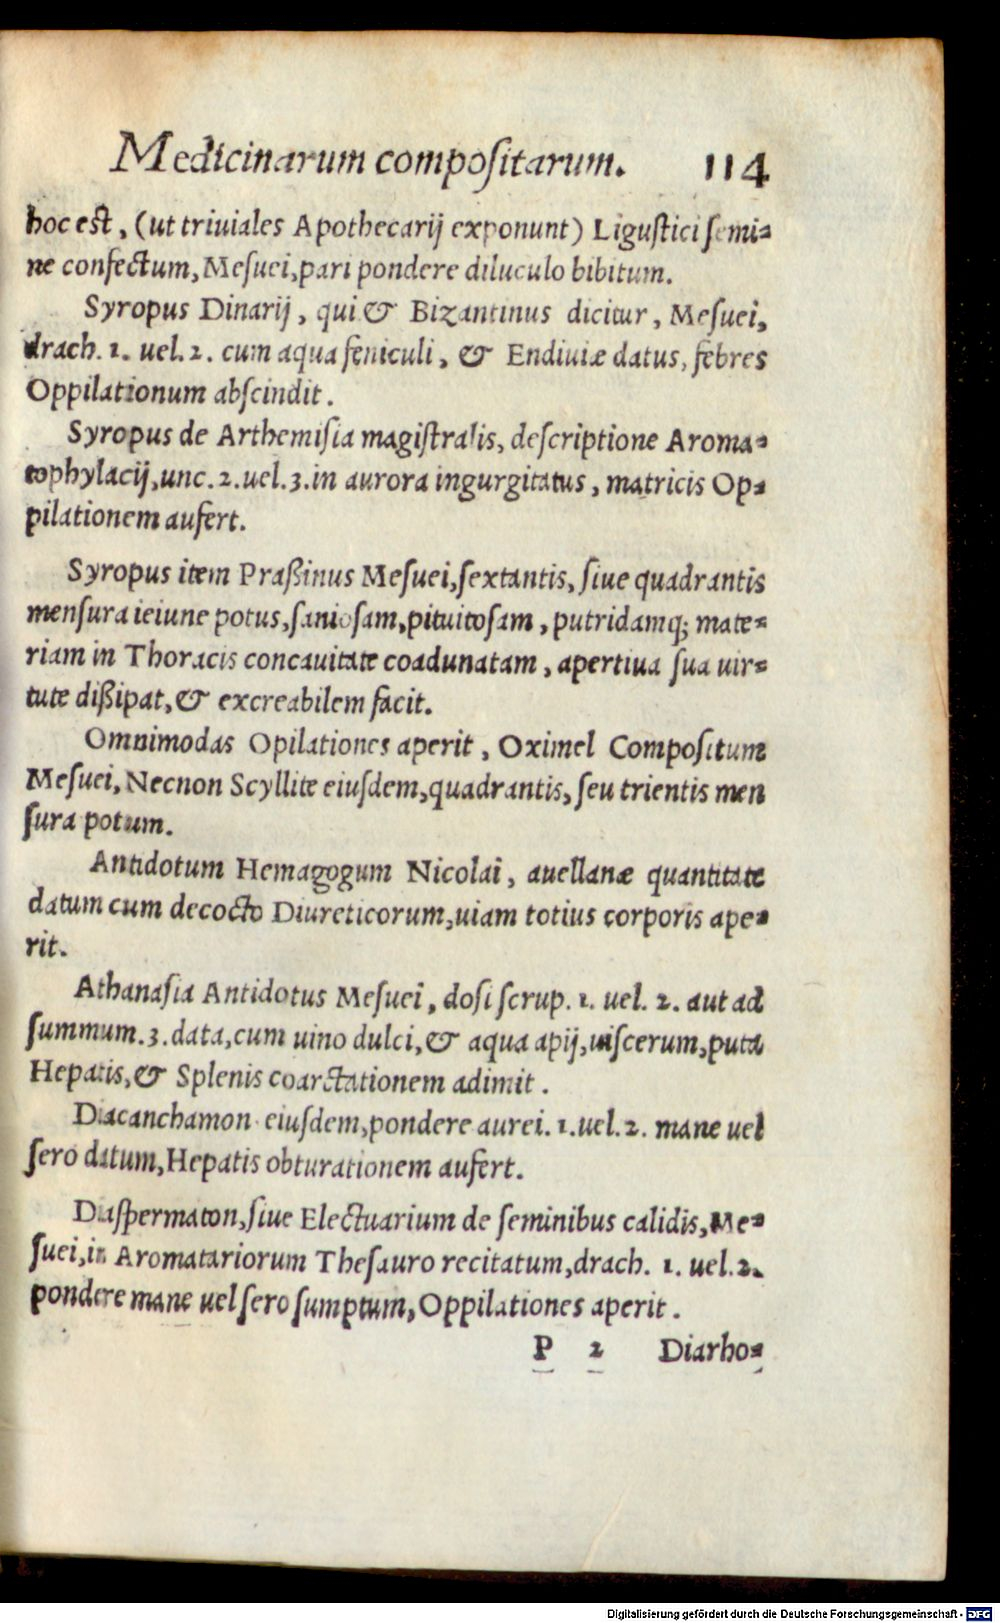 Medicinarum compositarum. 114
hoc est, (ut triuiales Apothecarij exponunt) Ligustici semi-
ne confectum, Mesuei, pari pondere diluculo bibitum.
Syropus Dinarij, qui & Bizantinus dicitur, Mesuei,
drach. 1. uel. 2. cum aqua feniculi, & Endiuiæ datus, febres
Oppilationum abscindit.
Syropus de Arthemisia magistralis, descriptione Aroma-
tophylacij, unc. 2. uel. 3. in aurora ingurgitatus, matricis Op-
pilationem aufert.
Syropus item Praßinus Mesuei, sextantis, siue quadrantis
mensura ieiune potus, saniosam, pituitosam, putridamq; mate-
riam in Thoracis concauitate coadunatam, apertiua sua uir-
tute dißipat, & excreabilem facit.
Omnimodas Opilationes aperit, Oximel Compositum
Mesuei, Necnon Scyllite eiusdem, quadrantis, seu trientis men
sura potum.
Antidotum Hemagogum Nicolai, auellanæ quantitate
datum cum decocto Diureticorum, uiam totius corporis ape-
rit.
Athanasia Antidotus Mesuei, dosi scrup. 1. uel. 2. aut ad
summum. 3. data, cum uino dulci, & aqua apij, uiscerum, puta
Hepatis, & Splenis coarctationem adimit.
Diacanchamon eiusdem, pondere aurei. 1. uel. 2. mane uel
sero datum, Hepatis obturationem aufert.
Diaspermaton, siue Electuarium de seminibus calidis, Me-
suei, in Aromatariorum Thesauro recitatum, drach. 1. uel. 2.
pondere mane uel sero sumptum, Oppilationes aperit.
P 2 Diarho-
Digitalisierung gefördert durch die Deutsche Forschungsgemeinschaft - DFG